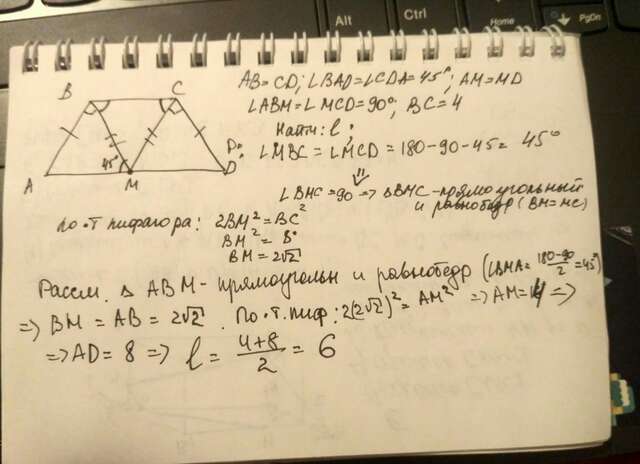 Alt
Ctrl
Home
PgDn
B C
A M D
45°
AB = CD; ∠BAD = ∠CDA = 45°; AM = MD
∠ABM = ∠MCD = 90°; BC = 4
Найти: ℓ;
D: ∠MBC = ∠MCD = 180-90-45 = 45°
⇓
∠BMC = 90 => ΔBMC - прямоугольный
и равнобедр (BM = MC)
По т. Пифагора: 2BM² = BC²
BM² = 8
BM = 2√2
Рассм. Δ ABM - прямоугольн и равнобедр (∠BMA = (180-90)/2 = 45°)
=> BM = AB = 2√2. По т. пиф: 2(2√2)² = AM² => AM = 4 =>
=> AD = 8 => ℓ = (4+8)/2 = 6